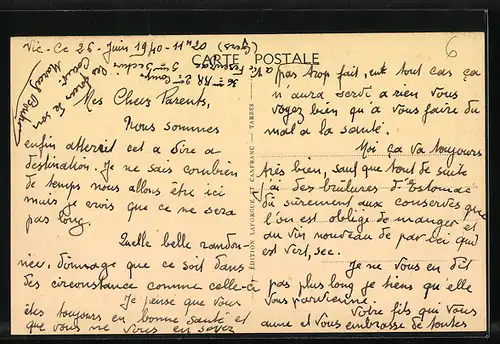 Vic-Ce 26 Juin 1940 - 11h20 (Gers)
CARTE POSTALE
6
Mes Chers Parents,
Nous sommes
enfin atterrit et a dire a
destination. Je ne sais combien
de temps nous allons être ici
mais je crois que ce ne sera
pas long.
Quelle belle randon-
née, dommage que ce soit dans
des circonstance comme celle-ci
Je pense que vous
êtes toujours en bonne santé et
que vous ne vous en soyez
pas trop fait, en tout cas ça
n'aura servi a rien vous
voyez bien qu'a vous faire du
mal a la santé.
Moi ça va toujours
très bien, sauf que tout de suite
j'ai des brulures d'Estomac
dû sûrement aux conserves que
l'on est obligé de manger et
du vin nouveau de par ici qui
est vert, sec.
Je ne vous en dit
pas plus long je tiens qu'elle
vous parvienne.
Votre fils qui vous
aime et vous embrasse de toutes
de son
Marcel
EDITION LABOUCHE ET CANFRANC — TARBES